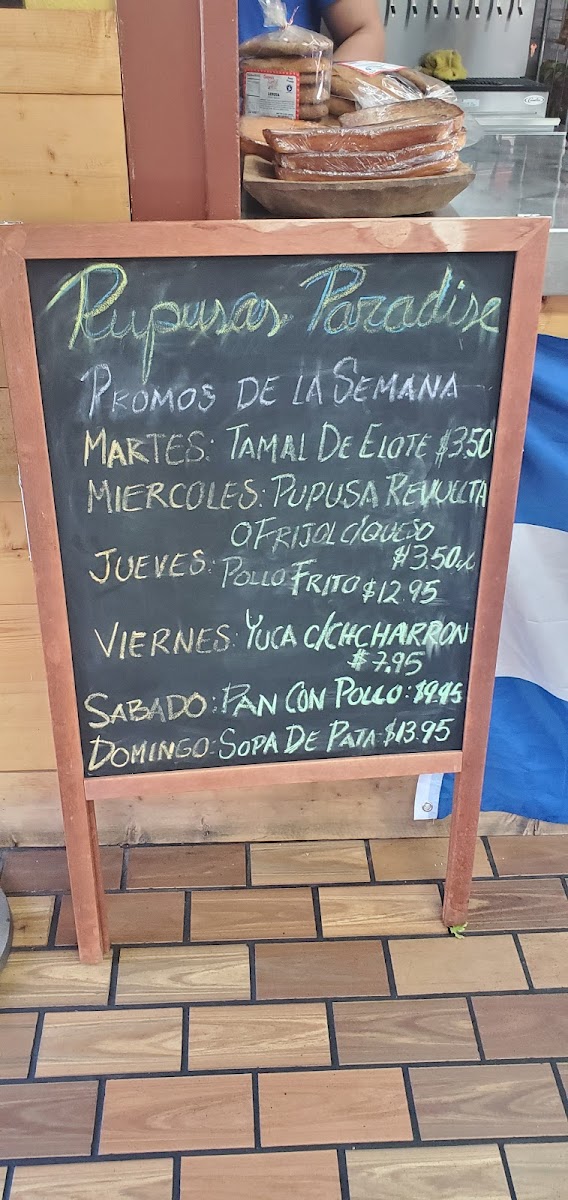 Pupusas Paradise
PROMOS DE LA SEMANA
MARTES: TAMAL DE ELOTE $3.50
MIERCOLES: PUPUSA REVUELTA
O FRIJOL C/QUESO
$3.50
JUEVES: POLLO FRITO $12.95
VIERNES: YUCA C/CHCHARRON
$7.95
SABADO: PAN CON POLLO: $9.95
DOMINGO: SOPA DE PATA $13.95